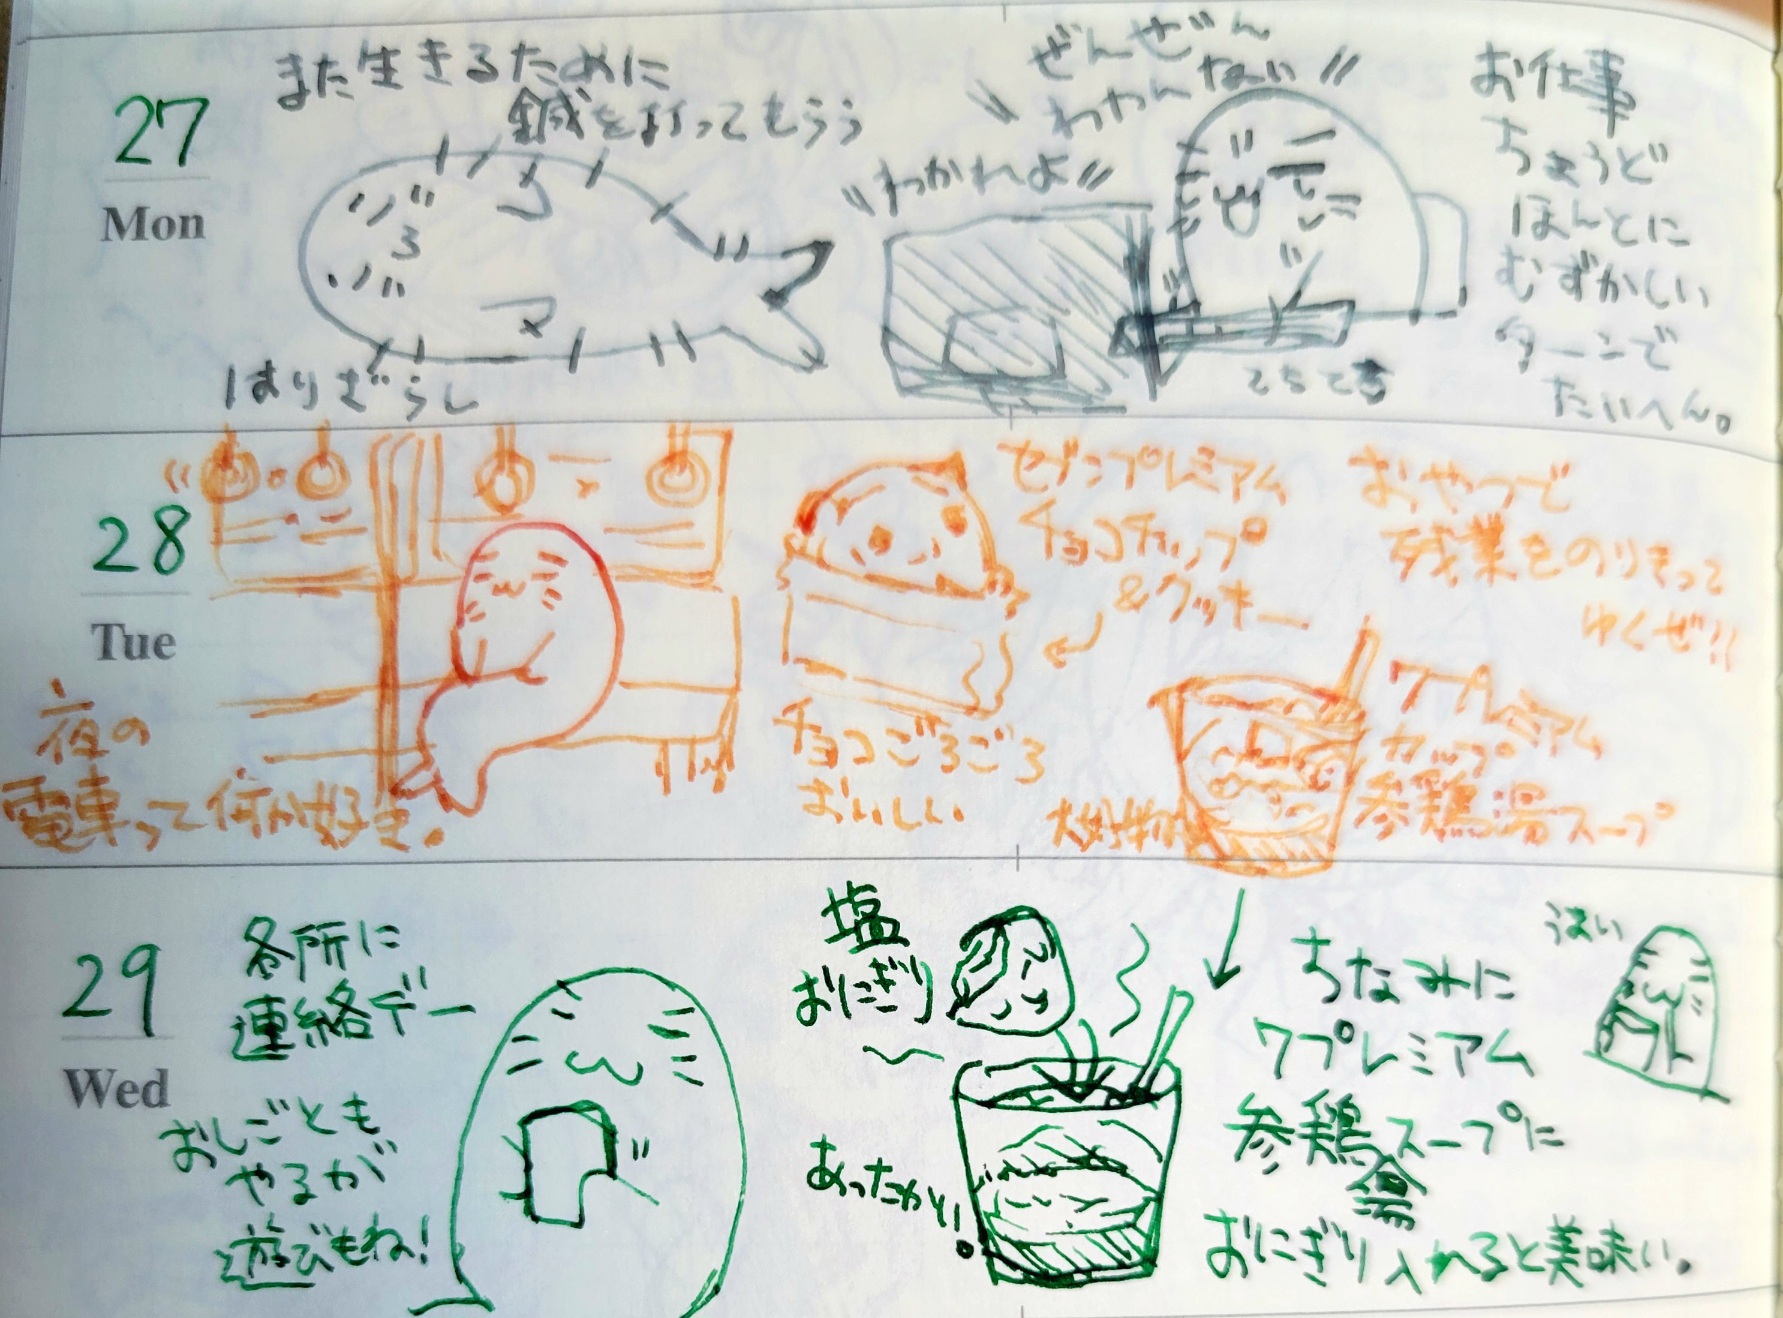 27
Mon
また生きるために
鍼を打ってもらう
はりざらし
ぜんぜん
わかんない
わかれよ
お仕事
ちょうど
ほんとに
むずかしい
ターンで
たいへん。
28
Tue
夜の
電車って何か好き。
セブンプレミアム
チョコチップ
&クッキー
チョコごろごろ
おいしい
おやつで
残業をのりきって
ゆくぜ!!
大好物
7プレミアム
カップ
参鶏湯スープ
29
Wed
各所に
連絡デー
おしごとも
やるが
遊びもね!
塩
おにぎり
あったかい!
ちなみに
7プレミアム
参鶏湯スープに
おにぎり入れると美味い。
うまい